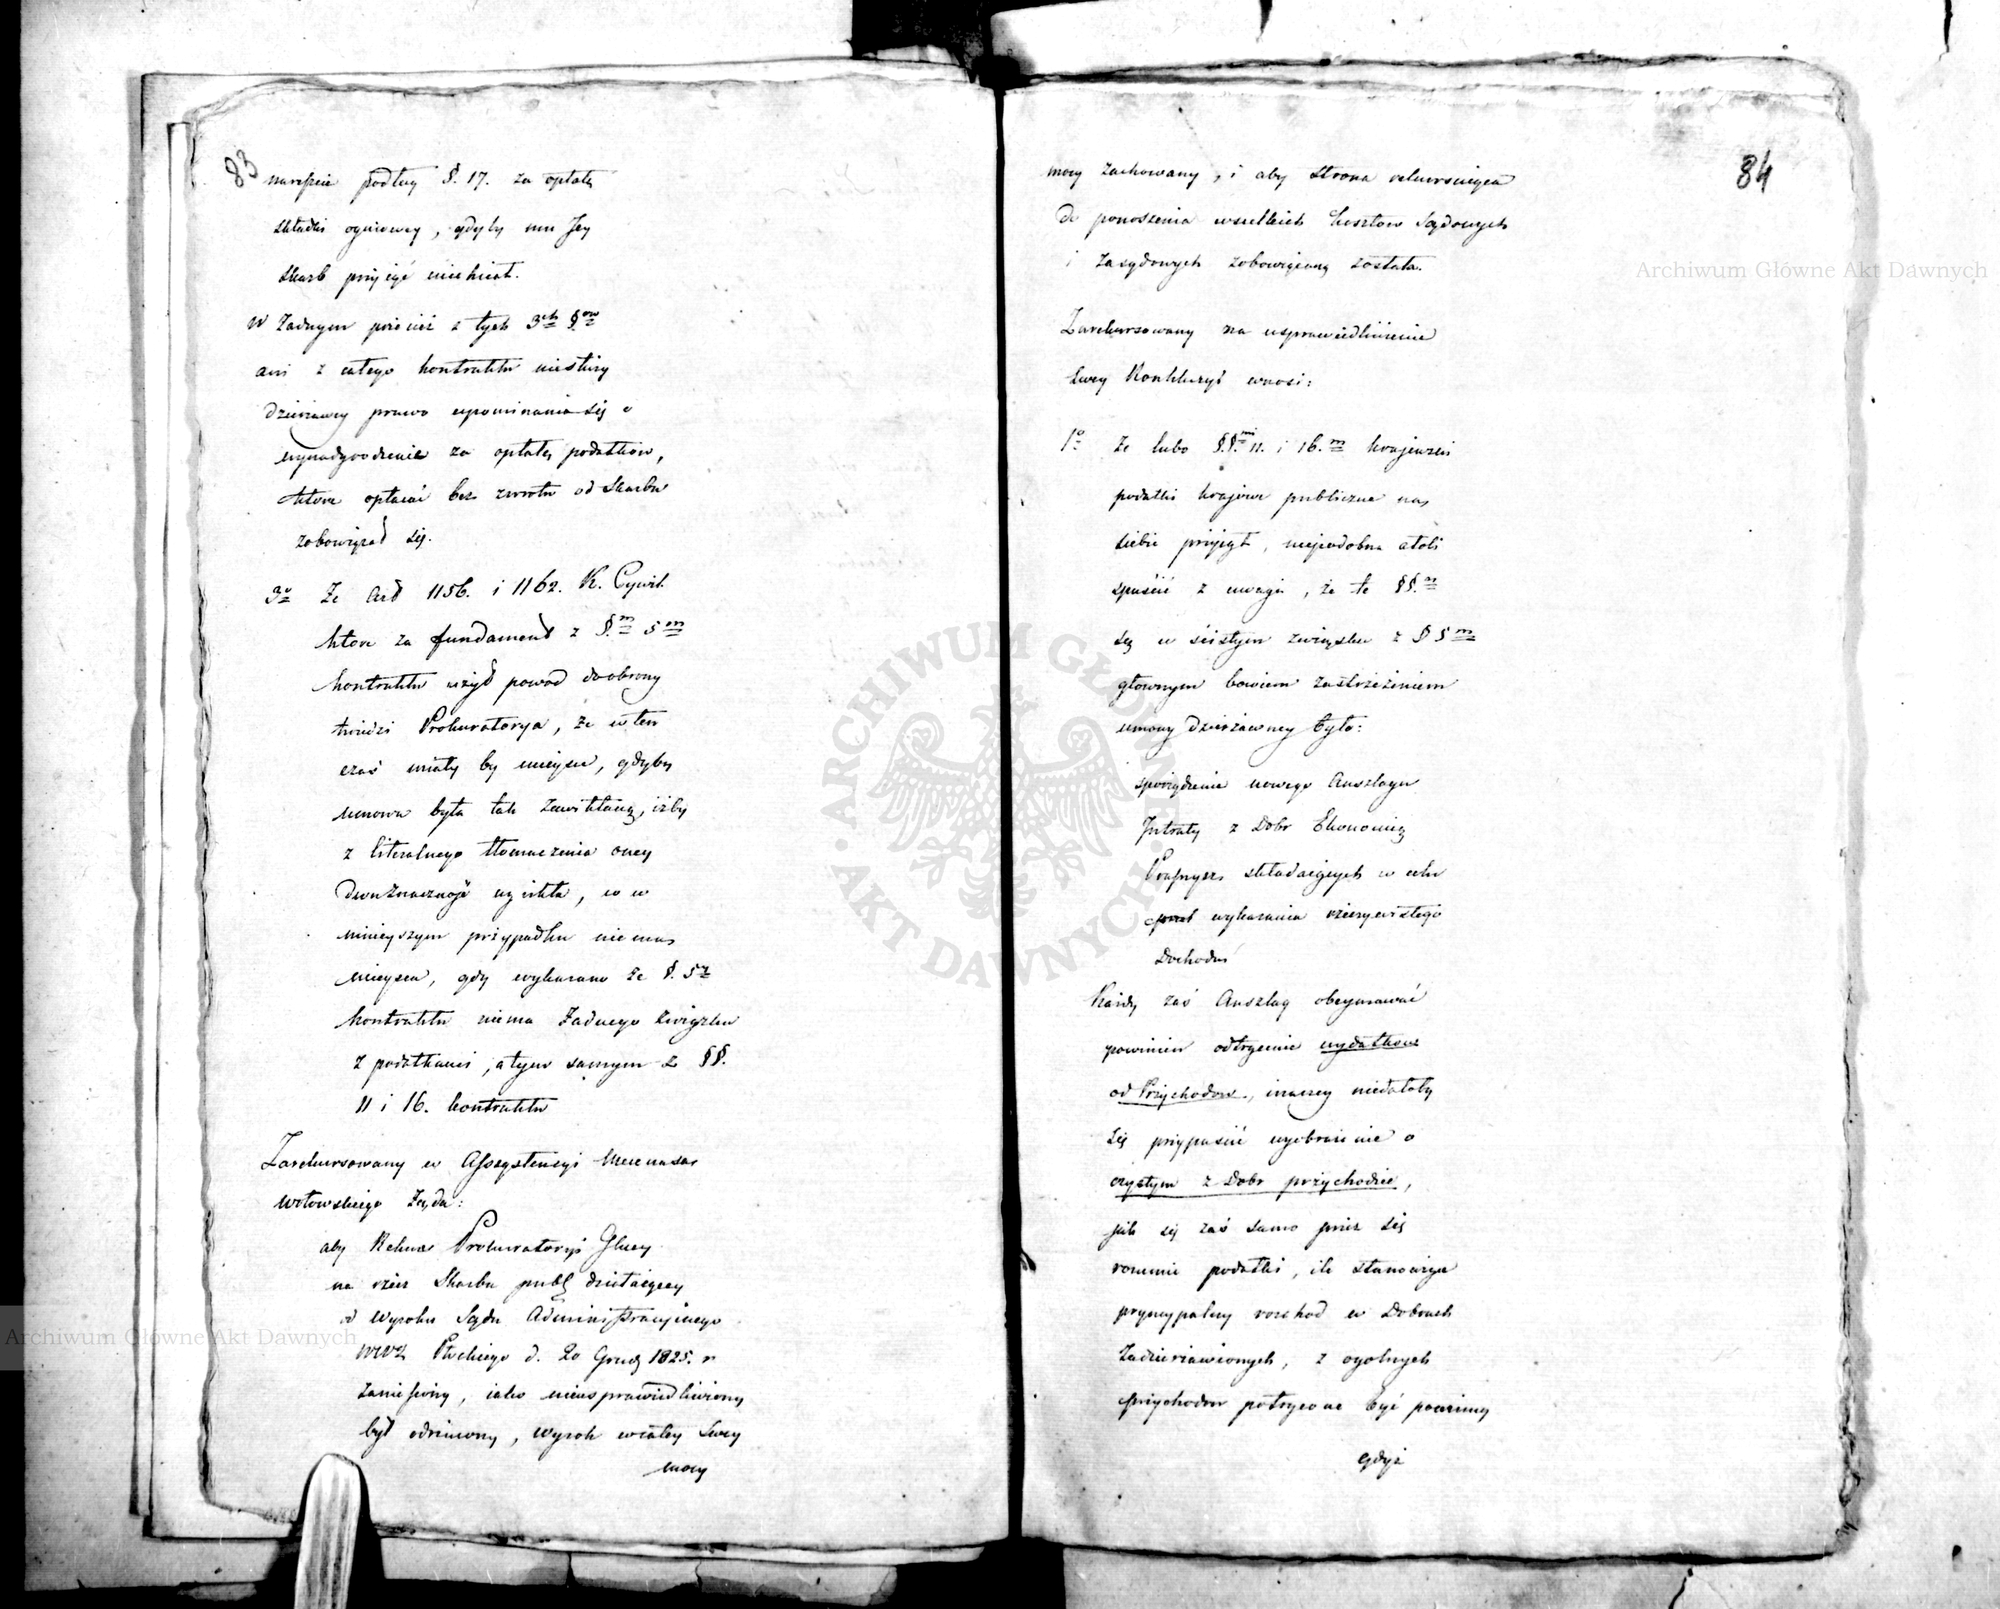 83
nareszcie podług §. 17. za opłatę
składki ogniowey, gdyby mu Jey
Skarb przyiąć niechciał.
W żadnym przecież z tych 3ch §ow
ani z całego kontraktu niesłuży
Dzierżawcy prawo upominania się o
wynadgrodzenie za opłatę podatkow,
które opłacać bez zwrotu od Skarbu
zobowiązał się.
3o Że Art 1156. i 1162. K. Cywil.
które za fundament z §.m 5m
kontraktu użył powod do obrony
twierdzi Prokuratorya, że w ten
czas miały by mieysce, gdyby
umowa była tak zawikłaną, iżby
z literalnego tłomaczenia oney
dwuznaczność wynikła, co w
ninieyszym przypadku nie ma
mieysca, gdy wykazano że §. 5ty
kontraktu niema żadnego związku
z podatkami, a tym samym z §§.
11 i 16. kontraktu
Zarekursowany w Assystencyi Mecenasa
Wołowskiego żąda:
aby Rekurs Prokuratoryi Glney
na rzecz Skarbu publ działaiącey
od Wyroku Sądu Administracyinego
Wdztwa Płockiego d. 20 Grud 1825. r
zaniesiony, iako nieusprawiedliwiony
był odrzucony, Wyrok w całey Swey
mocy
84
mocy zachowany, i aby strona rekursuiąca
do ponoszenia wszelkich kosztow Sądowych
i zasądowych zobowiązaną została.
Zarekursowany na usprawiedliwienie
Swey Konkluzyi wnosi:
1o Że lubo §§.mi 11. i 16.m
podatki kraiowe publiczne na
siebie przyiął, niepodobna atoli
spuścić z uwagi, że te §§.
są w ścisłym związku z § 5m
głownym bowiem zastrzeżeniem
umowy Dzierżawney było:
sporządzenie nowego Anszlagu
Intraty z Dobr Ekonomią
Przasnysz składaiących w celu
wykazania rzeczywistego
Dochodu
Każdy zaś Anszlag obeymować
powinien odtrącenie wydatkow
od Przychodow, inaczey niedałoby
się przypuścić wyobrażenie o
czystym z Dobr przychodzie,
jak się zaś samo przez się
rozumie podatki, ile stanowiące
pryncypalny rozchod w Dobrach
Zadzierżawionych, z ogolnych
przychodow potrącone być powinny
gdyż
Archiwum Główne Akt Dawnych
Archiwum Główne Akt Dawnych
ARCHIWUM GŁÓWNE AKT DAWNYCH